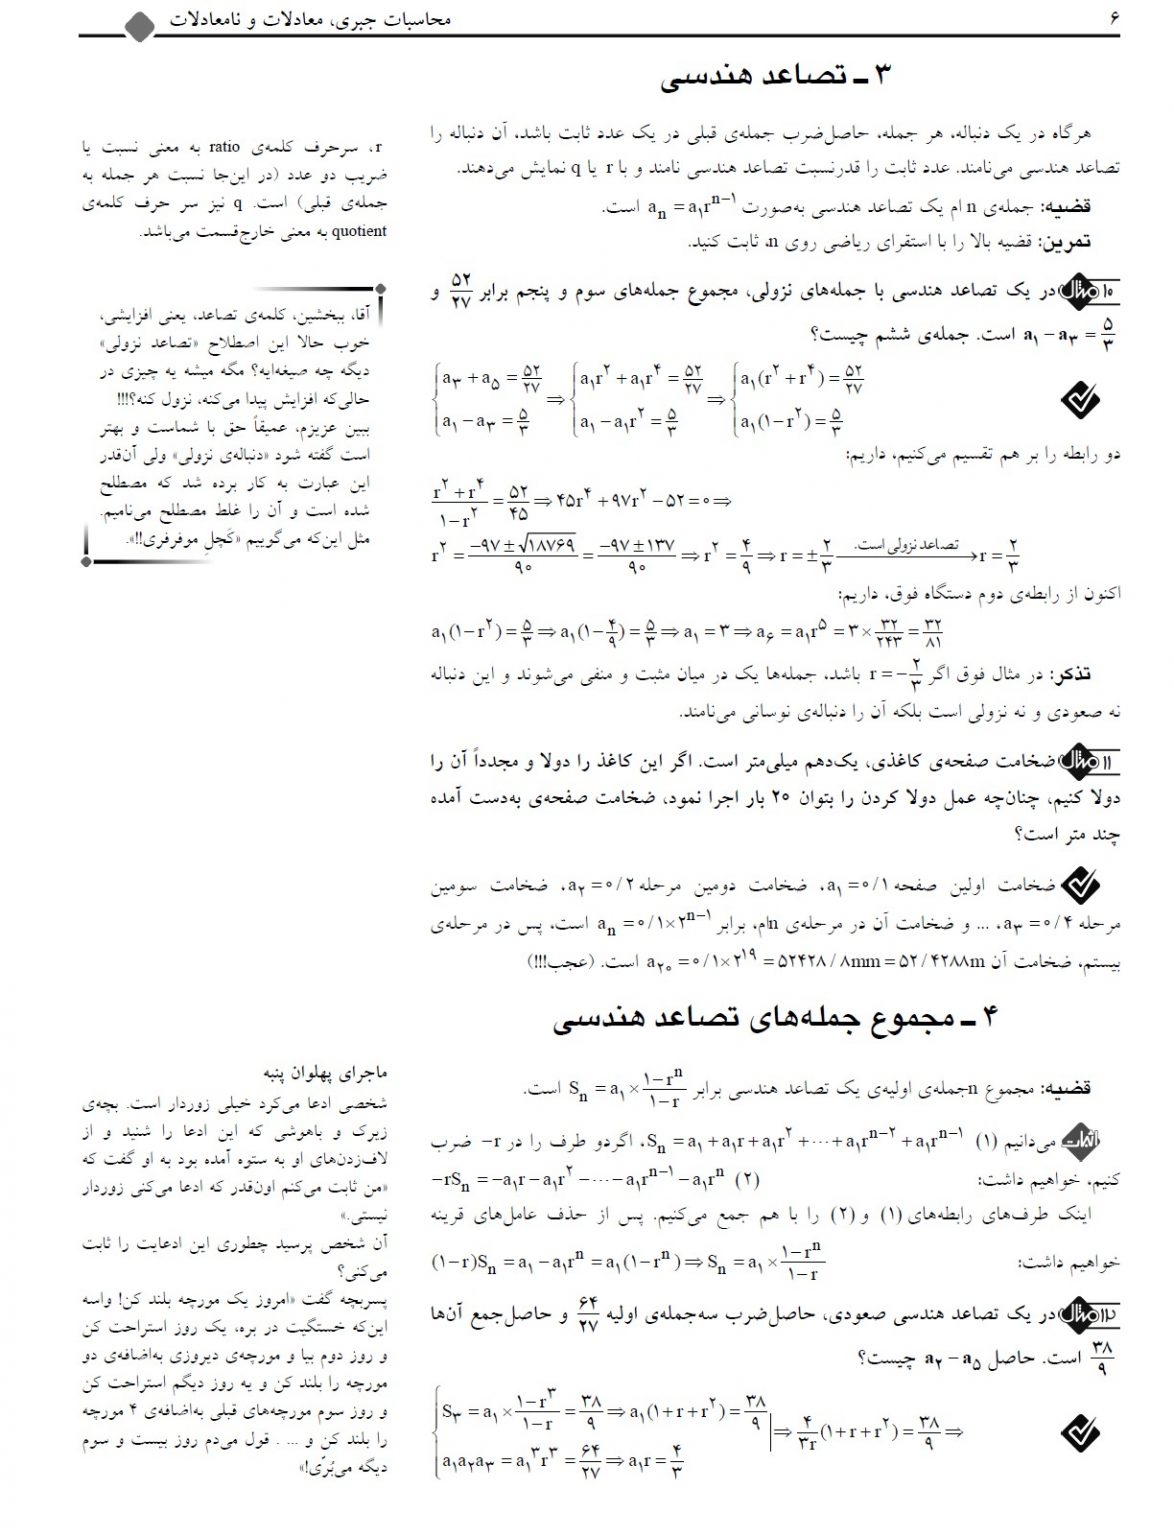 ۶
محاسبات جبری، معادلات و نامعادلات
۳ ـ تصاعد هندسی
هرگاه در یک دنباله، هر جمله، حاصل‌ضرب جمله‌ی قبلی در یک عدد ثابت باشد، آن دنباله را
تصاعد هندسی می‌نامند. عدد ثابت را قدرنسبت تصاعد هندسی نامند و با r یا q نمایش می‌دهند.
قضیه: جمله‌ی n ام یک تصاعد هندسی به‌صورت aₙ = a₁rⁿ⁻¹ است.
تمرین: قضیه بالا را با استقرای ریاضی روی n، ثابت کنید.
r، سرحرف کلمه‌ی ratio به معنی نسبت یا
ضریب دو عدد (در این‌جا نسبت هر جمله به
جمله‌ی قبلی) است. q نیز سر حرف کلمه‌ی
quotient به معنی خارج‌قسمت می‌باشد.
مثال ۱۰ در یک تصاعد هندسی با جمله‌های نزولی، مجموع جمله‌های سوم و پنجم برابر ۵۲/۲۷ و
a₁ − a₃ = ۵/۳ است. جمله‌ی ششم چیست؟
{a₃ + a₅ = ۵۲/۲۷ ⇒ {a₁r² + a₁r⁴ = ۵۲/۲۷ ⇒ {a₁(r² + r⁴) = ۵۲/۲۷
{a₁ − a₃ = ۵/۳ {a₁ − a₁r² = ۵/۳ {a₁(۱ − r²) = ۵/۳
دو رابطه را بر هم تقسیم می‌کنیم، داریم:
(r² + r⁴)/(۱ − r²) = ۵۲/۴۵ ⇒ ۴۵r⁴ + ۹۷r² − ۵۲ = ۰ ⇒
r² = (−۹۷ ± √۱۸۷۶۹)/۹۰ = (−۹۷ ± ۱۳۷)/۹۰ ⇒ r² = ۴/۹ ⇒ r = ±۲/۳ تصاعد نزولی است. → r = ۲/۳
اکنون از رابطه‌ی دوم دستگاه فوق، داریم:
a₁(۱ − r²) = ۵/۳ ⇒ a₁(۱ − ۴/۹) = ۵/۳ ⇒ a₁ = ۳ ⇒ a₆ = a₁r⁵ = ۳ × ۳۲/۲۴۳ = ۳۲/۸۱
تذکر: در مثال فوق اگر r = −۲/۳ باشد، جمله‌ها یک در میان مثبت و منفی می‌شوند و این دنباله
نه صعودی و نه نزولی است بلکه آن را دنباله‌ی نوسانی می‌نامند.
آقا، ببخشین، کلمه‌ی تصاعد، یعنی افزایشی،
خوب حالا این اصطلاح «تصاعد نزولی»
دیگه چه صیغه‌ایه؟ مگه میشه یه چیزی در
حالی‌که افزایش پیدا می‌کنه، نزول کنه؟!!!
ببین عزیزم، عمیقاً حق با شماست و بهتر
است گفته شود «دنباله‌ی نزولی» ولی آن‌قدر
این عبارت به کار برده شد که مصطلح
شده است و آن را غلط مصطلح می‌نامیم.
مثل این‌که می‌گوییم «کَچلِ موفرفری!!».
مثال ۱۱ ضخامت صفحه‌ی کاغذی، یک‌دهم میلی‌متر است. اگر این کاغذ را دولا و مجدداً آن را
دولا کنیم، چنان‌چه عمل دولا کردن را بتوان ۲۰ بار اجرا نمود، ضخامت صفحه‌ی به‌دست آمده
چند متر است؟
ضخامت اولین صفحه a₁ = ۰/۱، ضخامت دومین مرحله a₂ = ۰/۲، ضخامت سومین
مرحله a₃ = ۰/۴، ... و ضخامت آن در مرحله‌ی nام، برابر aₙ = ۰/۱×۲ⁿ⁻¹ است، پس در مرحله‌ی
بیستم، ضخامت آن a₂₀ = ۰/۱×۲¹⁹ = ۵۲۴۲۸/۸mm = ۵۲/۴۲۸۸m است. (عجب!!!)
۴ ـ مجموع جمله‌های تصاعد هندسی
قضیه: مجموع nجمله‌ی اولیه‌ی یک تصاعد هندسی برابر Sₙ = a₁ × (۱−rⁿ)/(۱−r) است.
اثبات می‌دانیم (۱) Sₙ = a₁ + a₁r + a₁r² + ⋯ + a₁rⁿ⁻² + a₁rⁿ⁻¹، اگردو طرف را در −r ضرب
کنیم، خواهیم داشت: −rSₙ = −a₁r − a₁r² − ⋯ − a₁rⁿ⁻¹ − a₁rⁿ (۲)
اینک طرف‌های رابطه‌های (۱) و (۲) را با هم جمع می‌کنیم. پس از حذف عامل‌های قرینه
خواهیم داشت: (۱−r)Sₙ = a₁ − a₁rⁿ = a₁(۱−rⁿ) ⇒ Sₙ = a₁ × (۱−rⁿ)/(۱−r)
مثال ۱۲ در یک تصاعد هندسی صعودی، حاصل‌ضرب سه‌جمله‌ی اولیه ۶۴/۲۷ و حاصل‌جمع آن‌ها
۳۸/۹ است. حاصل a₂ − a₅ چیست؟
{S₃ = a₁ × (۱−r³)/(۱−r) = ۳۸/۹ ⇒ a₁(۱+r+r²) = ۳۸/۹ | ⇒ ۴/۳r (۱+r+r²) = ۳۸/۹ ⇒
{a₁a₂a₃ = a₁³r³ = ۶۴/۲۷ ⇒ a₁r = ۴/۳
ماجرای پهلوان پنبه
شخصی ادعا می‌کرد خیلی زوردار است. بچه‌ی
زیرک و باهوشی که این ادعا را شنید و از
لاف‌زدن‌های او به ستوه آمده بود به او گفت که
«من ثابت می‌کنم اون‌قدر که ادعا می‌کنی زوردار
نیستی.»
آن شخص پرسید چطوری این ادعایت را ثابت
می‌کنی؟
پسربچه گفت «امروز یک مورچه بلند کن! واسه
این‌که خستگیت در بره، یک روز استراحت کن
و روز دوم بیا و مورچه‌ی دیروزی به‌اضافه‌ی دو
مورچه را بلند کن و یه روز دیگم استراحت کن
و روز سوم مورچه‌های قبلی به‌اضافه‌ی ۴ مورچه
را بلند کن و ... . قول می‌دم روز بیست و سوم
دیگه می‌بُرّی!»